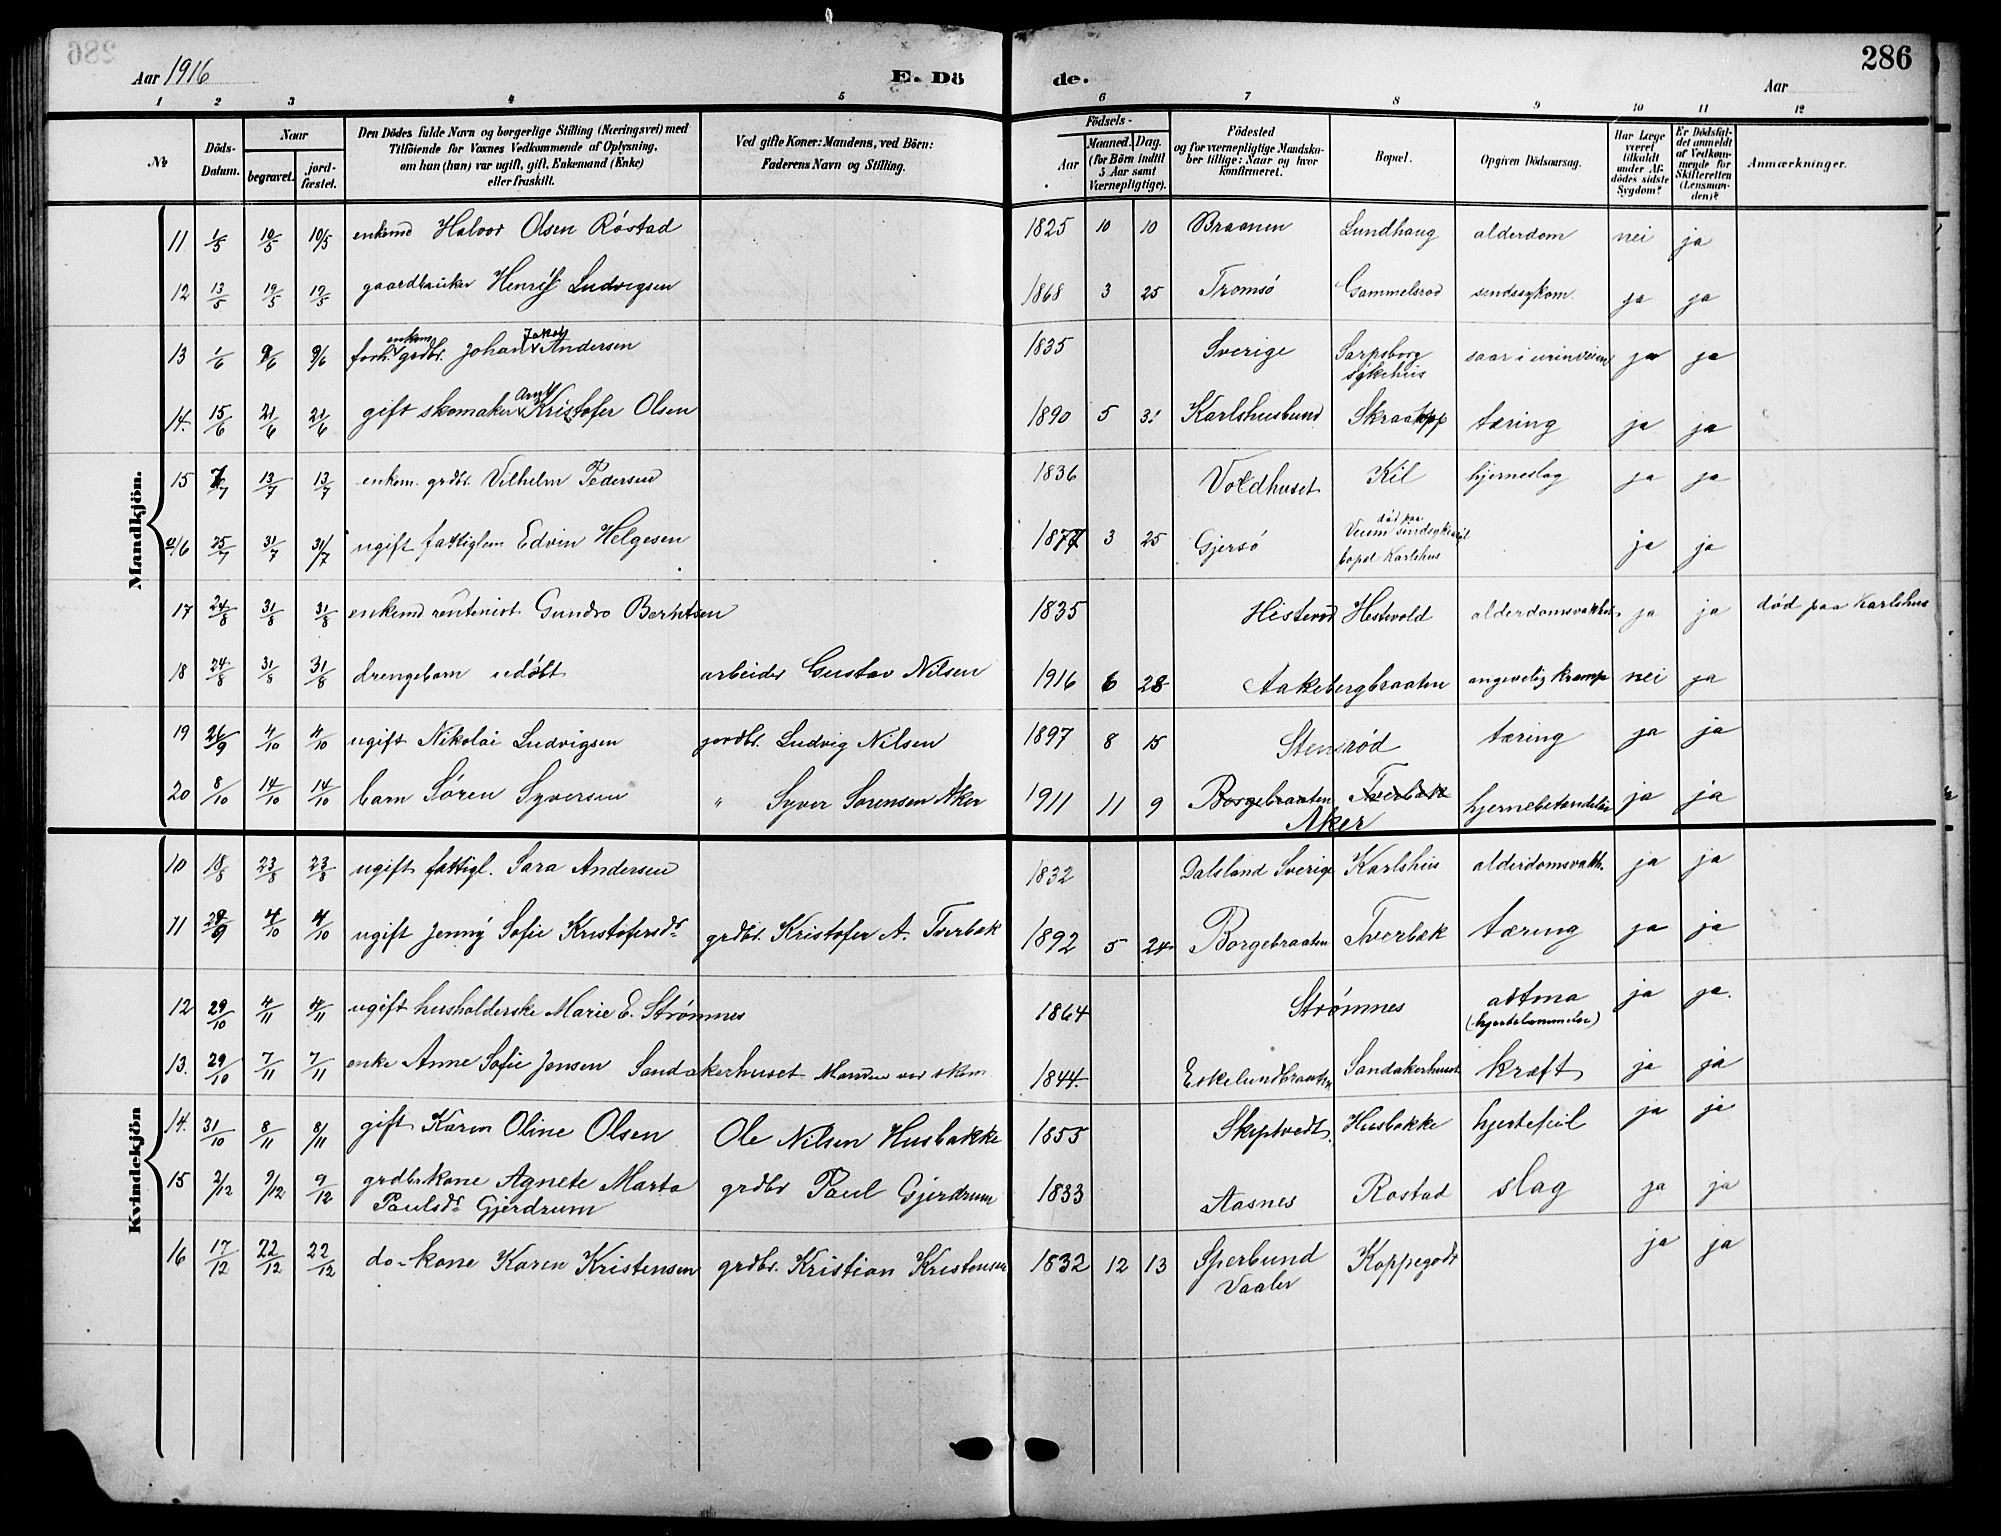 286
Aar 1916
E. Dö de.
Aar
1 2 3 4 5 6 7 8 9 10 11 12
№
Döds-Datum.
Naar begravet. jord-fæstet.
Den Dödes fulde Navn og borgerlige Stilling (Næringsvei) med Tilföiende for Voxnes Vedkommende af Oplysning, om han (hun) var ugift, gift, Enkemand (Enke) eller fraskilt.
Ved gifte Koner: Mandens, ved Börn: Faderens Navn og Stilling.
Födsels- Aar Maaned. Dag. (for Börn indtil 5 Aar samt Værnepligtige).
Födested og for værnepligtige Mandskaber tillige: Naar og hvor konfirmeret.
Bopæl.
Opgiven Dödsaarsag.
Har Læge været tilkaldt under Afdödes sidste Sygdom?
Er Dödsfaldet anmeldt af Vedkommende for Skifteretten (Lensmanden)?
Anmærkninger.
Mandkjön.
11 1/5 10/5 10/5 enkemd Halvor Olsen Röstad 1825 10 10 Braanen Lundhaug alderdom nei ja
12 13/5 19/5 19/5 gaardbruker Henrik Ludvigsen 1868 3 25 Tromsø Gammelsrød sindssykom. ja ja
13 1/6 9/6 9/6 forh. enkem. grdbr. Johan Jakob Andersen 1835 Sverige Sarpsborg sykehus saar i urinveiene ja ja
14. 15/6 21/6 21/6 gift skomaker Kristofer Olsen 1890 5 31 Karlshusbund tæring ja ja
15 7/7 13/7 13/7 enkem. grdbr. Vilhelm Pedersen 1836 Voldhuset Kil hjerneslag ja ja
16 25/7 31/7 31/7 ugift fattiglem Edvin Helgesen 1877 3 25 Gjersø død paa Veum Sindsykeasyl bopel Karlshus ja ja
17 24/8 31/8 31/8 enkemd rentenist Gundro Berntsen 1835 Hestvold alderdomsvakhet ja ja død paa Karlshus
18 24/8 31/8 31/8 drengebarn udöbt arbeider Gustav Nilsen 1916 6 28 Aakebergbraaten angivelig krampe nei ja
19 26/9 4/10 4/10 ugift Nikolai Ludvigsen jordbr. Ludvig Nilsen 1897 8 15 Stensrød tæring ja ja
20 8/10 14/10 14/10 barn Søren Syversen " Syver Sørensen Aker 1911 11 9 Borgebraaten Tverbæk Aker hjernebetendelse ja ja
Kvindekjön
10 18/8 23/8 23/8 ugift fattigl. Sara Andersen 1832 Dalsland Sverige Karlshus alderdomsvakh. ja ja
11 29/9 4/10 4/10 ugift Jenny Sofie Kristofersdr grdbr. Kristofer A. Tverbæk 1892 5 24 Borgebraaten Tverbæk tæring ja ja
12 29/10 4/11 4/11 ugift husholderske Marie E. Strømnes 1864 Strømnes astma (hjertelammelse) ja ja.
13. 29/10 7/11 7/11 enke Anne Sofie Jensen Sandakerhuset Manden var skom 1844. Eskelundbraaten Sandakerhuset kræft ja ja
14. 31/10 8/11 8/11 gift Karen Oline Olsen Ole Nilsen Husbakke 1855 Skiptvedt. Husbakke hjertefeil ja ja
15 2/12 9/12 9/12 grdbrkone Agnete Marta Paulsdr Gjerdrum grdbr Paul Gjerdrum 1833 Aasnes Rostad slag ja ja
16 17/12 22/12 22/12 do-kone Karen Kristensen grdbr. Kristian Kristensen 1832 12 13 Sperbund Vaaler Koppegodt ja ja